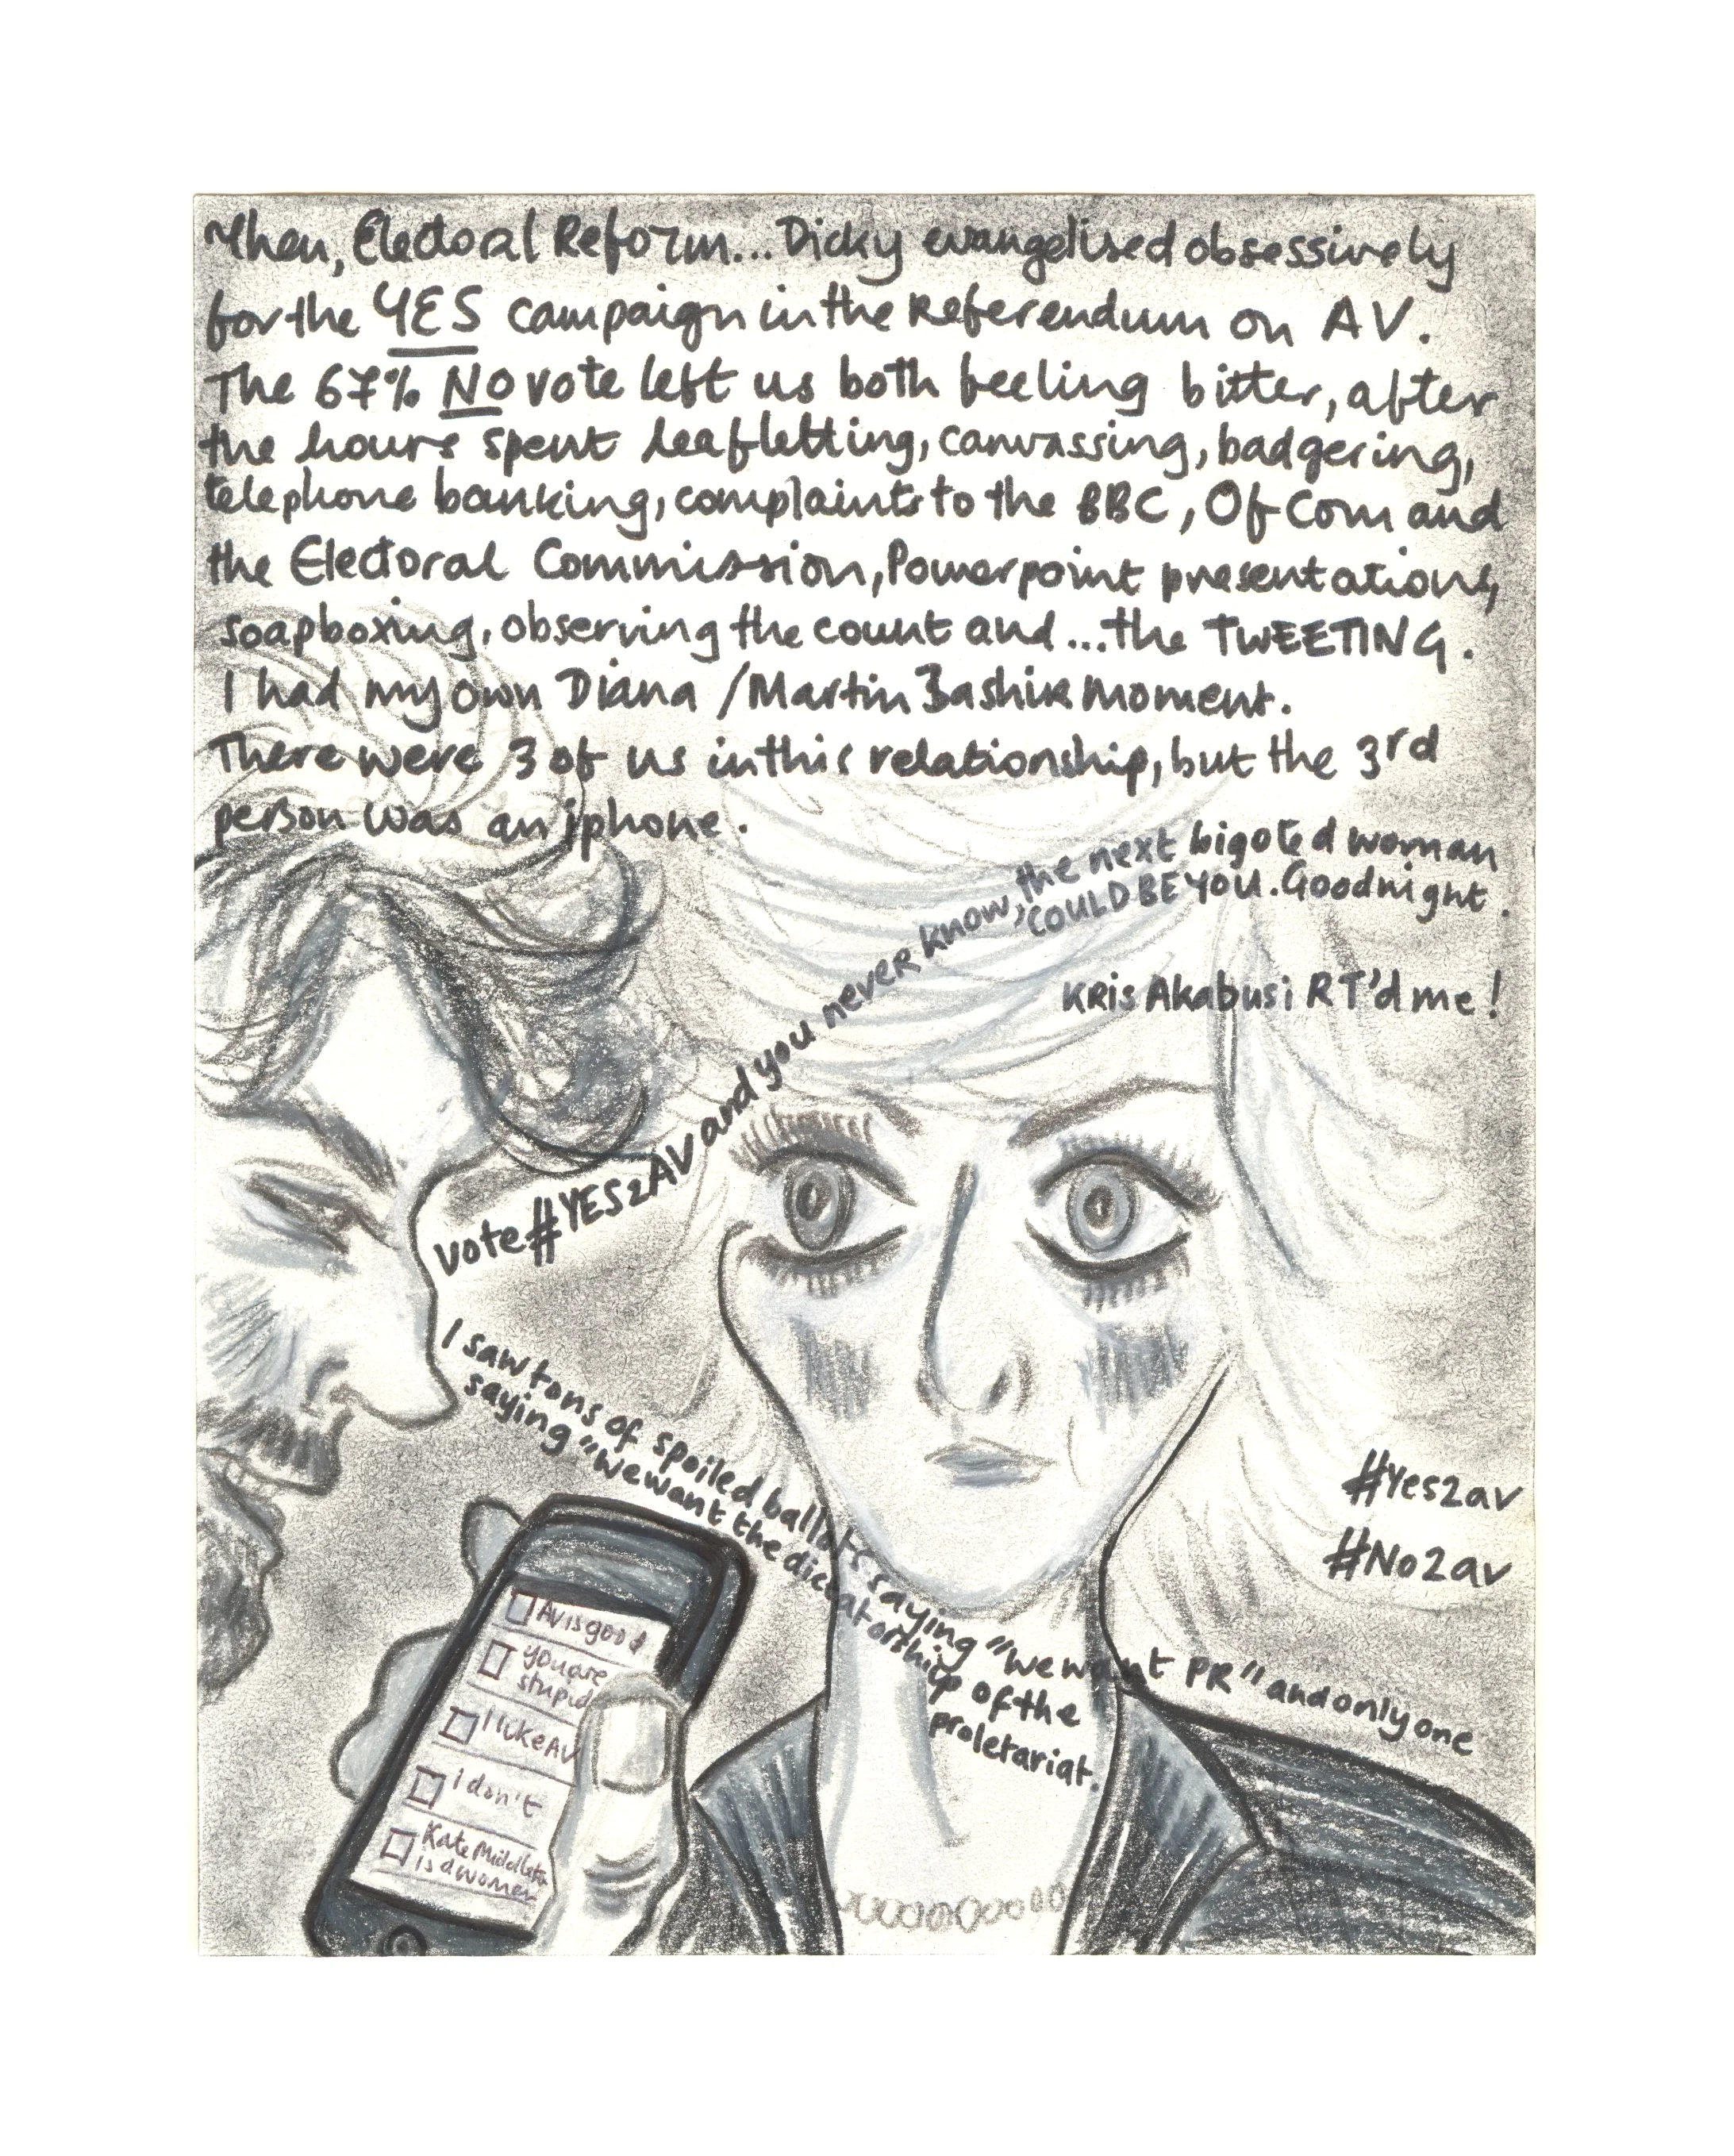 Then, Electoal Reform... Dicky evangelised obsessively
for the YES campaign in the Referendum on AV.
The 67% NO vote left us both feeling bitter, after
the hours spent leafletting, canvassing, badgering,
telephone banking, complaints to the BBC, OfCom and
the Electoral Commission, Powerpoint presentations,
soapboxing, observing the count and...the TWEETING.
I had my own Diana / Martin Bashir moment.
There were 3 of us in this relationship, but the 3rd
person was an iphone.
vote #YES2AV and you never know, the next bigoted woman
COULD BE YOU. Goodnight.
KRis Akabusi RT'd me!
I saw tons of spoiled ballots saying "we want PR" and only one
saying "we want the dictatorship of the
proletariat.
#Yes2av
#No2av
AV is good
you are
stupid
I like AV
I don't
Kate Middleton
is a women